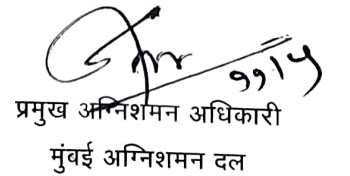 ११/५
प्रमुख अग्निशमन अधिकारी
मुंबई अग्निशमन दल